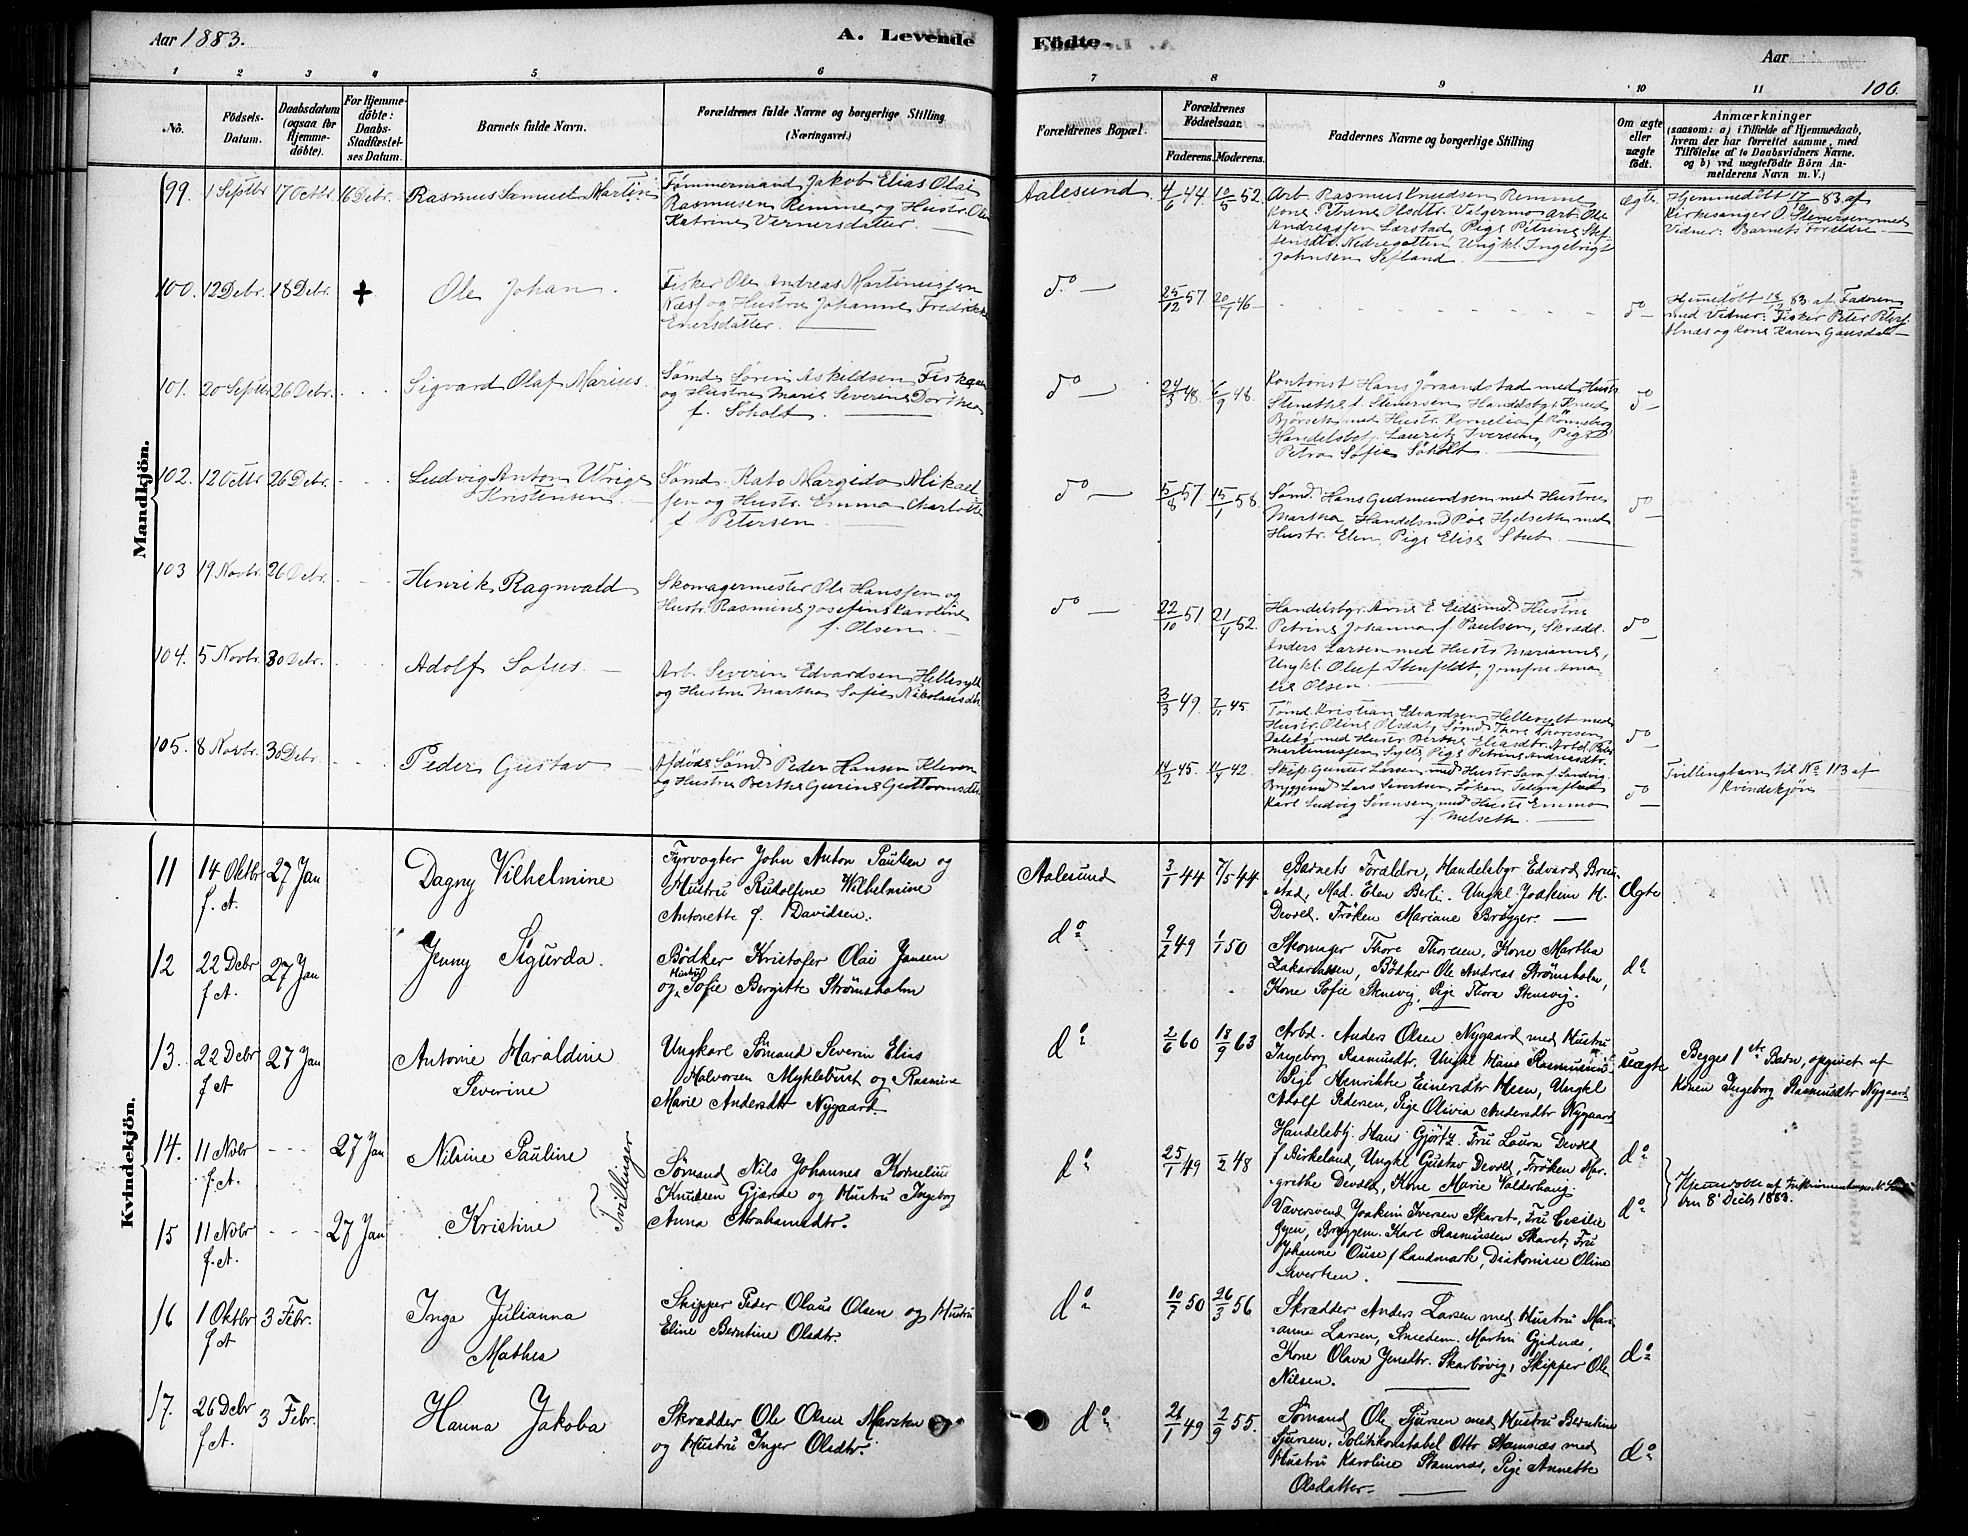 Aar 1883.
A. Levende
Födte.
Aar
106
1 2 3 4 5 6 7 8 9 10 11
No.
Födsels-Datum.
Daabsdatum (ogsaa for Hjemme-döbte).
For Hjemme-döbte: Daabs-Stadfæstel-ses Datum.
Barnets fulde Navn.
Forældrenes fulde Navne og borgerlige Stilling (Næringsvei.)
Forældrenes Bopæl.
Forældrenes Födselsaar.
Faderens. Moderens.
Faddernes Navne og borgerlige Stilling
Om ægte eller uægte födt.
Anmærkninger
(saasom: a) i Tilfælde af Hjemmedaab, hvem der har forrettet samme, med Tilföielse af to Daabsvidners Navne. og b) ved uægtefödte Börn An-melderens Navn m. V.)
Mandkjön.
99. 1 Septbr 17 Octbr. 16 Debr. Rasmus Samuel Martin
Tømmermand Jakob Elias Olai
Rasmusen Remme og Hustr. Oline
Katrine Vernersdatter.
Aalesund 4/6 44 10/5 52
Arb. Rasmus Knudsen Remme
Kone Petrine
Andreassen Pige Petrine
Ungkl. Ingebrigt
Johnsen
ægte
Hjemmedöbt 17/10 83 af
Kirkesanger O. Stenersen med
Vidner: Barnets Forældre.
100. 12 Debr. 18 Debr. + Ole Johan
Fisker Ole Andreas Martinussen
Næss og Hustru Johanne Fredrikke
Enersdatter.
do 25/12 57 20/7 46
do
Hjemedöbt 13/12 83 af Faderen
med Vidner: Fisker Peter
og Kone Karen
101. 20 Septbr 26 Debr. Sigvard Olaf Marius.
Sømd. Søren Askildsen
og Hustru Marie Severine Dorthea
f. Søholt.
do 24/3 48. 6/9 48.
Kontorist Hans med Hustr.
f. Stenersen Handelsbgr. Knud
Bjørseth med Hustr. Kornelia f. Rønneberg
Handelsbet. Lauritz Iversen, Pige
Petra Sofie Søholt.
do
102. 12 Octbr 26 Debr. Ludvig Anton
Kristensen
Sømd. Kato Margido Mikael
sen og Hustr. Emma Charlotte
f. Petersen
do 5/8 57 15/1 58.
Sømd. Hans Gudmundsen med Hustru
Martha Handelsmd. Roe Hjelseth med
Hustr. Elen, Pige Elise Stub.
do
103 19 Novbr. 26 Debr. Henrik Ragnvald
Skomagermester Ole Hanssen og
Hustr. Rasmine Josefine Karoline
f. Olsen.
do 22/10 51 21/4 52.
Handelsbgr. Arne E. Eide med Hustru
Petrine Johanna f. Paulsen, Skrædd.
Anders Larsen med Hustr. Marianne,
Ungkl. Oluf Jomfru Ama-
lie Olsen
do
104. 5 Novbr. 30 Debr. Adolf Sofus.
Arb. Severin Edvardsen Hellesylt
og Hustru Martha Sofie Nikolaisdtr.
3/3 49. 7/11 45
Tømd. Kristian Edvardsen Hellesylt med
Hustr. Oline Olsdat, Sømd. Thore Thoresen
med Hustr. Berthe Eliasdtr. Arbd. Peder
Martinussen Sylte, Pige Petrine Andreasdtr.
do
105. 8 Novbr. 30 Debr. Peder Gustav
Afdøde Sømd. Peder Hansen Kleven
og Hustru Berthe Gurine Guttormsdtr.
14/2 45. 11/4 42.
Skip. Gunter Larsen med Hustr. Sara f. Sandvig.
Bryggemd. Lars Sivertsen Løken, Telegrafbud
Karl Ludvig Sørensen med Hustr. Emma
f. Melseth.
do
Tvillingbarn til No 113 af
Kvindekjøn
Kvindekjön.
11 14 Oktbr f. A. 27 Jan Dagny Vilhelmine
Fyrvogter John Anton Paulsen og
Hustru Rudolfine Wilhelmine
Antonette f. Davidsen.
Aalesund 3/1 44 7/5 44
Barnets Forældre, Handelsbgr Edvard Bru-
stad, Mad. Elen Berli. Ungkl Joakim H.
Devold. Frøken Mariane Brøgger.
Ægte
12 22 Debr f A. 27 Jan Jenny Sigurda.
Bødker Kristofer Olai Jansen
og Hustru Sofie Bergitte Strømsholm
do 9/2 49 1/1 50
Skomager Thore Thoresen, Kone Martha
Zakariassen, Bødker Ole Andreas Strømsholm,
Kone Sofie Stensvig, Pige Thora Stensvig.
do
13. 22 Debr f A 27 Jan Antonie Haraldine
Severine
Ungkarl Sømand Severin Elias
Halvorsen Myklebust og Rasmine
Marie Andersdtr Nygaard
do 2/6 60 18/9 63
Arbd. Anders Olsen Nygaard med Hustru
Ingeborg Rasmusdtr, Ungkl Hans Rasmussen
Pige Henrikke Einersdtr Hesen, Ungkl
Adolf Pedersen, Pige Olivia Andersdtr Nygaard
uægte
Begges 1ste Barn, opgivet af
Konen Ingeborg Rasmusdtr Nygaard
14. 11 Novbr f. A. - - - 27 Jan Nilsine Pauline
Tvillinger
Sømand Nils Johannes Kornelius
Knudsen Gjærde og Hustru Ingeborg
Anna Abrahamsdtr.
do 25/1 49 /2 48
Handelsbtj. Hans Gjørtz. Fru Laura Devold
f Birkeland, Ungkl Gustav Devold, Frøken Mar-
grethe Devold, Kone Marie Valderhaug.
do
Hjemmedøbt af
den 8' Decbr 1883.
15 11 Novbr f. A. - - - 27 Jan Kristine
Væversvend Joakim Iversen Skaret, Fru Cecilie
Gjøen, Bryggem. Karl Rasmussen Skaret, Fru
Johanne Ouse f Landmark, Diakonisse Oline
Sivertsen.
do
16 1 Oktbr f A 3 Febr. Inga Julianna
Mathea
Skipper Peder Olaus Olsen og Hustru
Eline Berntine Olsdtr.
do 10/7 50 26/3 56
Skrædder Anders Larsen med Hustru Mari-
anna Larsen, Smedem. Martin Gjidnæs,
Kone Olava Jensdtr. Skarbøvig, Skipper Ole
Nilsen.
do
17. 26 Debr f A. 3 Febr. Hanna Jakoba
Skrædder Ole Olsen Marsten
og Hustru Inger Olsdtr.
do 26/1 49 2/9 55.
Sømand Ole Sjursen med Hustru Berntine
Sjursen, Politikonstabel Otto Stamnæs med
Hustru Karoline Stamnæs, Pige Annette
Olsdatter.
do